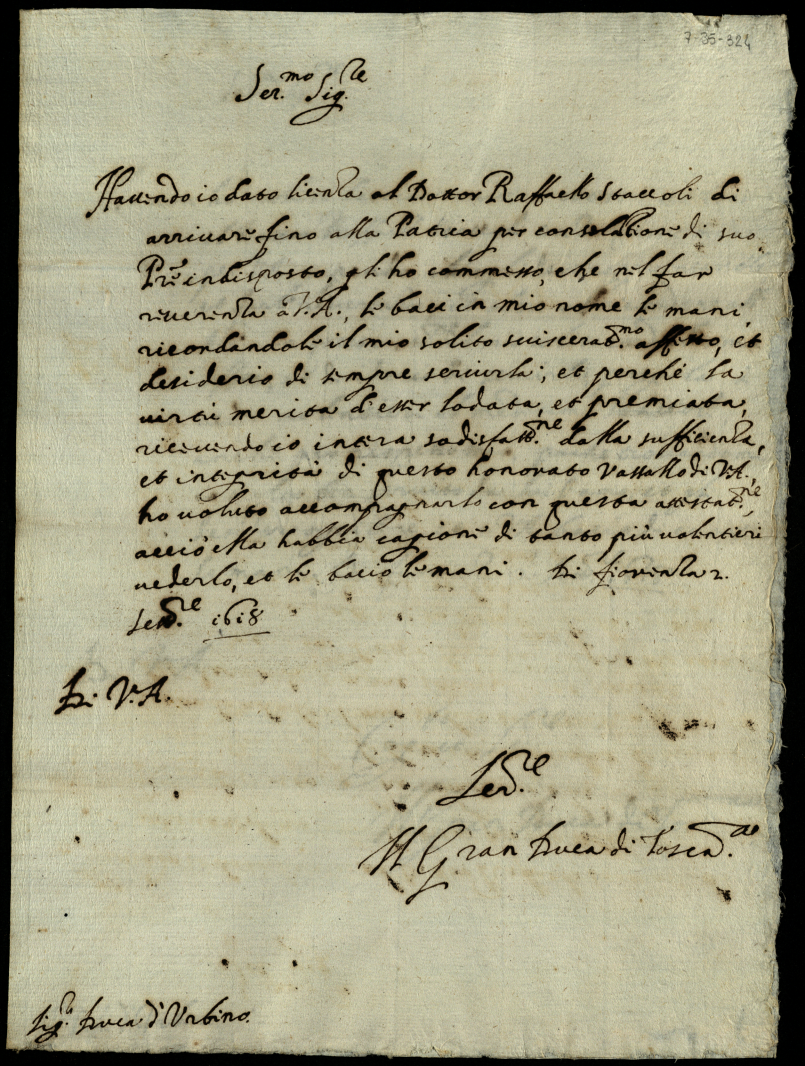 7-35-324
Ser.mo Sig.re
Havendo io dato licenza al Dottor Raffaello Staccoli di
arrivare fino alla Patria per consolatione di suo
Pre indisposto, gli ho commesso, che nel far
reverenza a V.A., le baci in mio nome le mani,
ricordandole il mio solito suiscerat.mo affetto, et
desiderio di sempre servirla; et perche la
virtù merita d'esser lodata, et premiata,
ricevendo io intera sadisfatt.ne dalla sufficienza,
et integrità di questo honorato Vassallo di V.A.,
ho voluto accompagnarlo con questa attestat.ne,
acciò ella habbia cagione di tanto più valentieri
vederlo, et le bacio le mani. Di Fiorenza 2.
1618
Di V.A.
Ser.re
Il Gran Duca di Tosca.a
Sig.r Duca d'Urbino.